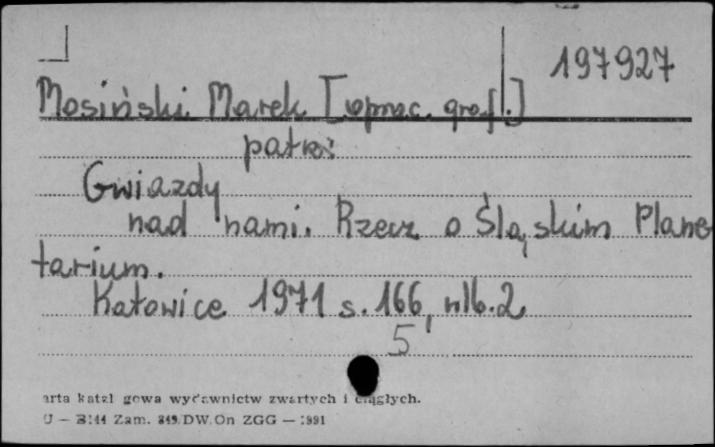 197927
Mosiński Marek [oprac. graf.]
patrz:
Gwiazdy
nad nami. Rzecz o Śląskim Plane
tarium.
Katowice 1971 s. 166, nlb. 2
5
arta katal gowa wydawnictw zwartych i ciągłych.
U – Zam. DW.On ZGG –